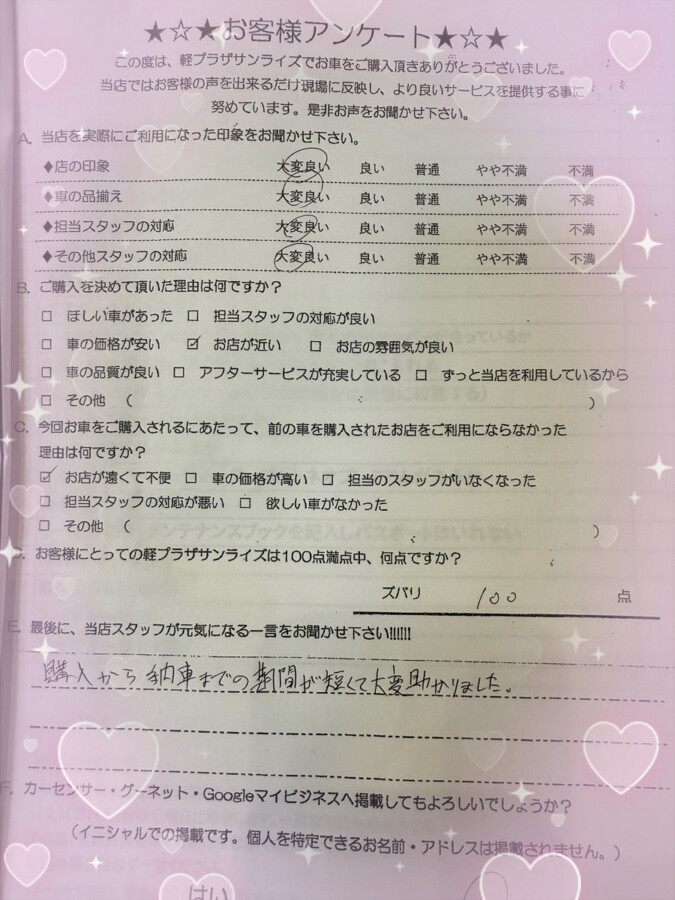 ★☆★お客様アンケート★☆★
この度は、軽プラザサンライズでお車をご購入頂きありがとうございました。
当店ではお客様の声を出来るだけ現場に反映し、より良いサービスを提供する事に
努めています。是非お声をお聞かせ下さい。
A. 当店を実際にご利用になった印象をお聞かせ下さい。
♦店の印象 大変良い 良い 普通 やや不満 不満
♦車の品揃え 大変良い 良い 普通 やや不満 不満
♦担当スタッフの対応 大変良い 良い 普通 やや不満 不満
♦その他スタッフの対応 大変良い 良い 普通 やや不満 不満
B. ご購入を決めて頂いた理由は何ですか?
□ ほしい車があった □ 担当スタッフの対応が良い
□ 車の価格が安い ☑ お店が近い □ お店の雰囲気が良い
□ 車の品質が良い □ アフターサービスが充実している □ ずっと当店を利用しているから
□ その他 ( )
C. 今回お車をご購入されるにあたって、前の車を購入されたお店をご利用にならなかった
理由は何ですか?
☑ お店が遠くて不便 □ 車の価格が高い □ 担当のスタッフがいなくなった
□ 担当スタッフの対応が悪い □ 欲しい車がなかった
□ その他 ( )
. お客様にとっての軽プラザサンライズは100点満点中、何点ですか?
ズバリ 100 点
E. 最後に、当店スタッフが元気になる一言をお聞かせ下さい!!!!!!
購入から納車までの期間が短くて大変助かりました。
F. カーセンサー・グーネット・Googleマイビジネスへ掲載してもよろしいでしょうか?
(イニシャルでの掲載です。個人を特定できるお名前・アドレスは掲載されません。)
はい